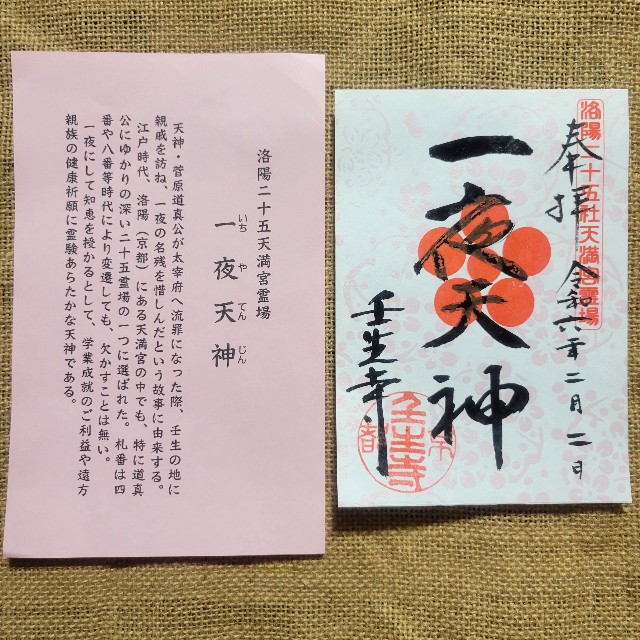 洛陽二十五天満宮霊場
一夜天神
いちやてんじん
天神・菅原道真公が太宰府へ流罪になった際、壬生の地に
親戚を訪ね、一夜の名残を惜しんだという故事に由来する。
江戸時代、洛陽(京都)にある天満宮の中でも、特に道真
公にゆかりの深い二十五霊場の一つに選ばれた。札番は四
番や八番等時代により変遷しても、欠かすことは無い。
一夜にして知恵を授かるとして、学業成就のご利益や遠方
親族の健康祈願に霊験あらたかな天神である。
洛陽二十五社天満宮霊場
奉拝
令和六年二月二日
一夜天神
壬生寺
壬生寺